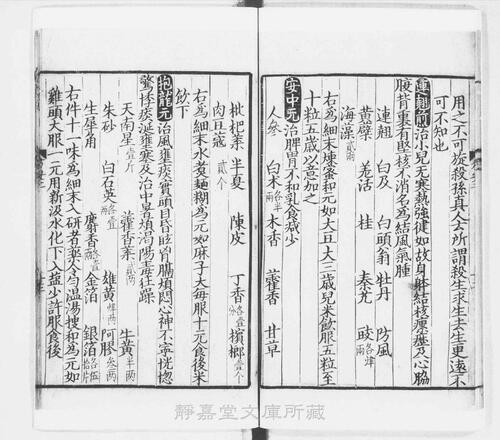 用之不可妄殺孫真人云所謂殺生求生去生更遠不
可不知也
連翹煎治小兒無寒熱強健如故身體結核瘰癧及心脇
腹背裏有堅核不消名為結風氣腫
連翹 白及 白頭翁 牡丹 防風
黃蘗 羗活 桂 秦艽 豉
海藻
右為細末煉蜜和元如大豆大三歲兒米飲服五粒至
十粒五歲以意加之
安中元治脾胃不和乳食減少
人參 白术 木香 藿香 甘草
枇杷葉 半夏 陳皮 丁香 檳榔
肉豆蔻 貳个
右為細末水煑麵糊為元如麻子大每服十元食後米
飲下
抱龍元治風壅痰實頭目昏眩胷膈煩悶心神不寧恍惚
驚悸痰涎壅塞及治中暑煩渴陽毒狂躁
天南星 壹斤 藿香葉 貳兩 牛黃 半兩
朱砂 白石英 雄黃 阿膠
生犀角 麝香 金箔 銀箔
右件十一味為細末入研者藥令勻溫湯搜和為元如
雞頭大服一元用新汲水化下入鹽少許服食後
靜嘉堂文庫所藏